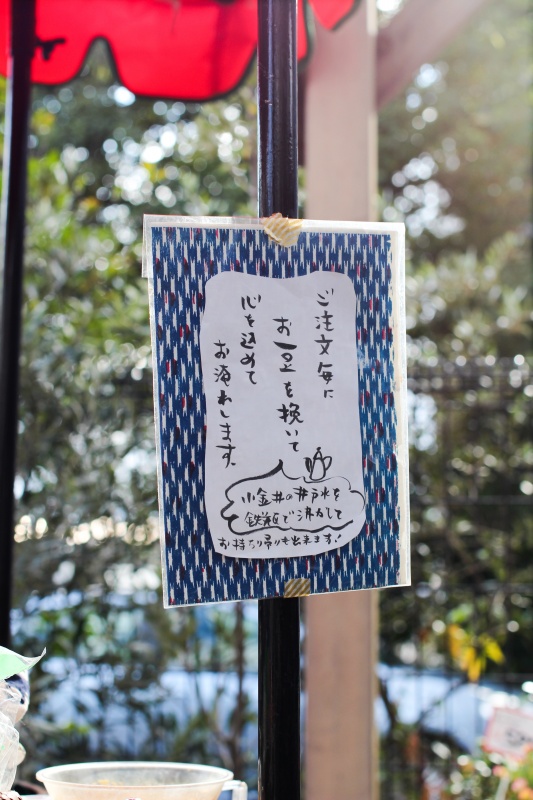 ご注文毎に
お豆を挽いて
心を込めて
お淹れします。
小金井の井戸水を
鉄瓶で沸かして
お持ち帰りも出来ます!